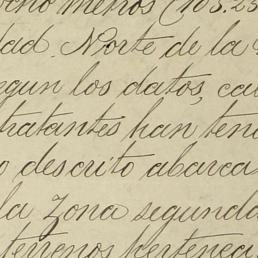 ocho menos (103.23
dad Norte de la
egun los datos, ca
tratantes han ten
o descrito abarca
la zona segunda
terrenos pertenec